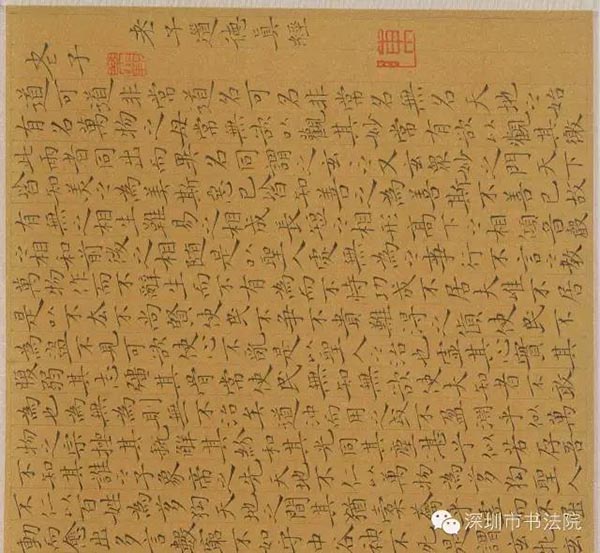 老子道德真經
老子
道可道非常道名可名非常名無名天地之始
有名萬物之母常無欲以觀其妙常有欲以觀其徼
此兩者同出而異名同謂之玄玄之又玄衆妙之門天下
皆知美之為美斯惡已皆知善之為善斯不善已故
有無之相生難易之相成長短之相形高下之相傾音聲
之相和前後之相隨是以聖人處無為之事行不言之教
萬物作而不辭生而不有為而不恃功成不居夫惟不居
是以不去不尚賢使民不爭不貴難得之貨使民不
為盜不見可欲使心不亂是以聖人之治也虛其心實其
腹弱其志強其骨常使民無知無欲使夫知者不敢
為也為無為則無不治矣道沖而用之或不盈淵乎似萬
物之宗挫其銳解其紛和其光同其塵湛乎似若存吾
不知其誰之子象帝之先天地不仁以萬物為芻狗聖人
不仁以百姓為芻狗天地之間其猶橐
動而愈出多言數窮不如守中谷神
深圳市书法院